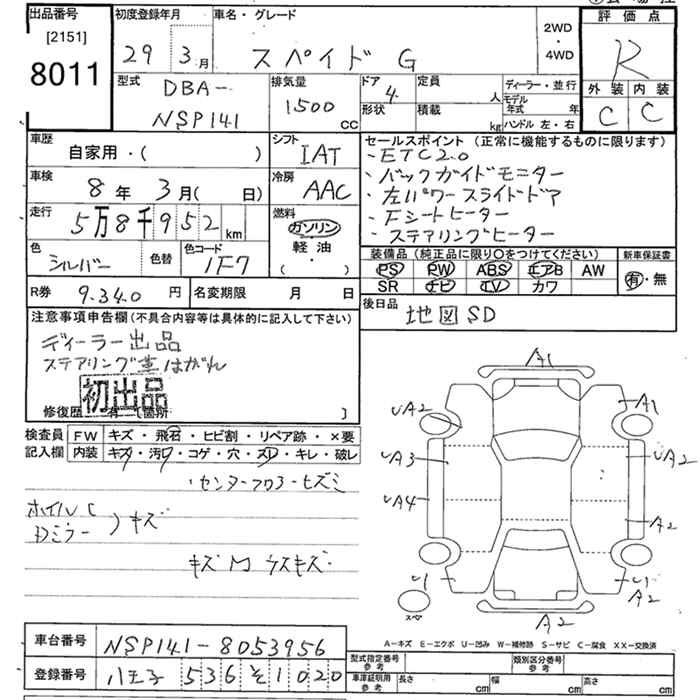 出品番号
[2151]
8011
初度登録年月
29年 3月
車名・グレード
スペイド G
2WD
・
4WD
評価点
R
外装 内装
C C
型式
DBA-
NSP141
排気量
1500
cc
ドア
4
形状
定員
人
積載
kg
ディーラー・並行
モデル年式 年
ハンドル 左・右
車歴
自家用・( )
シフト
IAT
車検
8年 3月( 日)
冷房
AAC
走行
5万8千952km
燃料
ガソリン
軽油
( ・ )
色
シルバー
色替
色コード
1F7
セールスポイント (正常に機能するものに限ります)
・ETC2.0
・バックガイドモニター
・左パワースライドドア
・Fシートヒーター
・ステアリングヒーター
装備品 (純正品に限り○をつけてください)
PS PW ABS エアB AW
SR ナビ TV カワ
新車保証書
有・無
R券 9.340円
名変期限 月 日
後日品
地図SD
注意事項申告欄 (不具合内容等は具体的に記入して下さい)
ディーラー出品
ステアリング革はがれ
初出品
修復歴 有 [箇所 ]
検査員
記入欄
FW キズ・飛石・ヒビ割・リペア跡・×要
内装 キズ・汚ワ・コゲ・穴・スレ・キレ・破レ
・センターフロアーヒズミ
ホイルC
Dミラー
)キズ
キズM ウスキズ・
A1
UA2
A1
UA3
UA2
UA4
A2
U1
U1
A2
スペア
A2
A-キズ E-エクボ U-凹み W-補修跡 S-サビ C-腐食 XX-交換済
車台番号
NSP141-8053956
登録番号
八王子 536 そ 1020
型式指定番号
参考
類別区分番号
参考
車庫証明用
参考
長さ cm
幅 cm
高さ cm